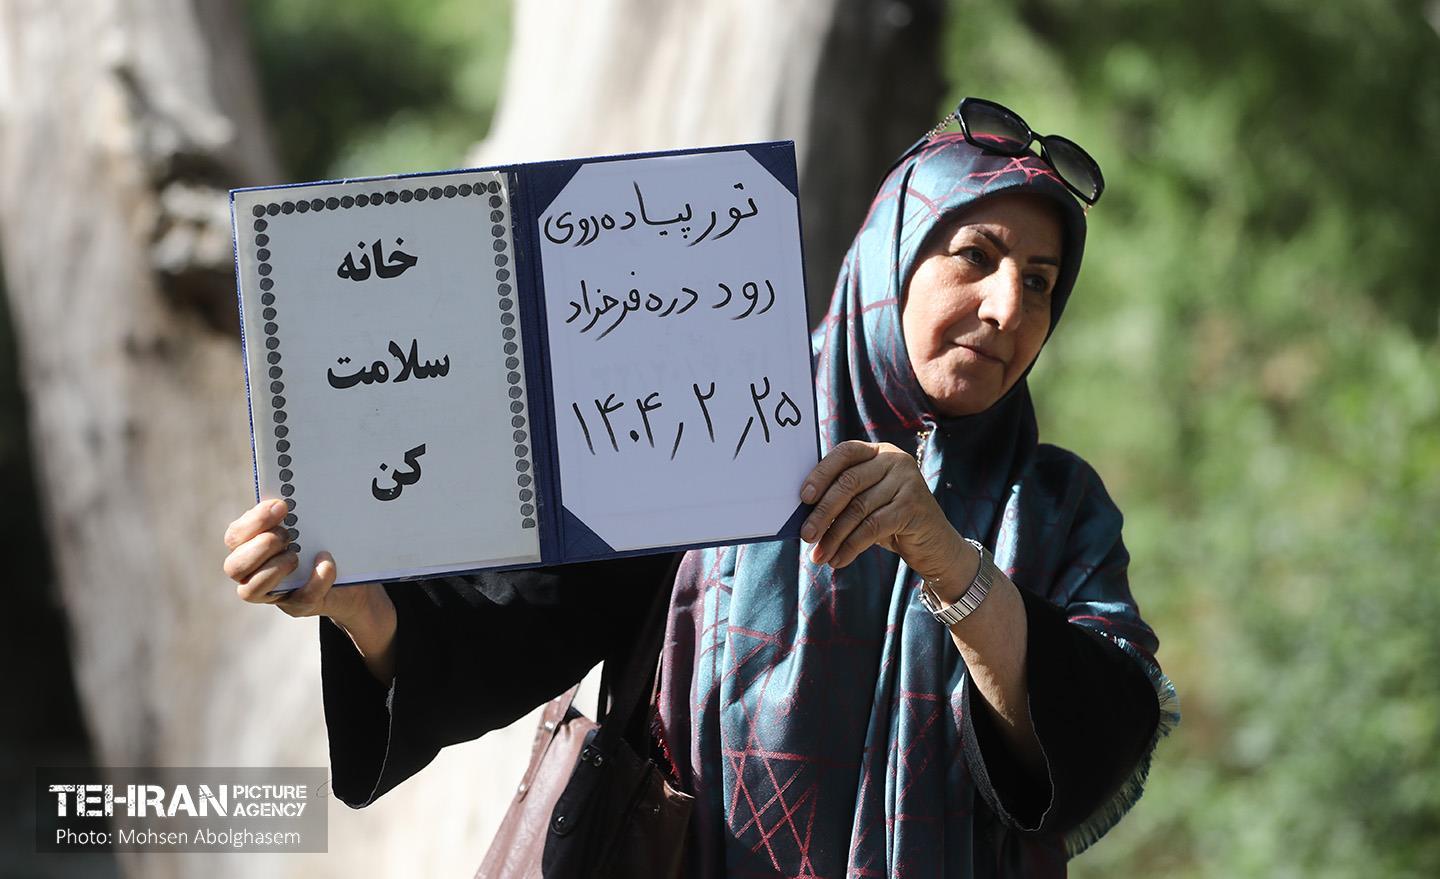 تور پیاده‌روی
رود دره فرحزاد
۱۴۰۴/۲/۲۵
خانه
سلامت
کن
TEHRAN PICTURE AGENCY
Photo: Mohsen Abolghasem